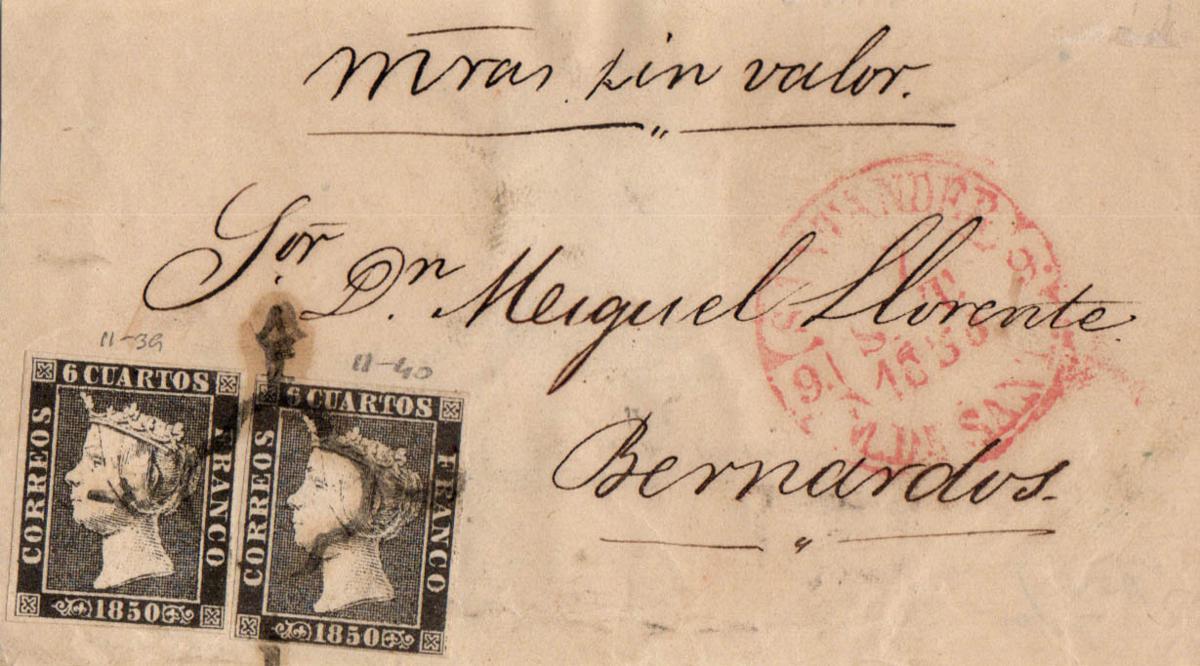 m̄ras sin valor.
Sor̄ Dn. Meiguel Llorente
Bernardos.
11-39
11-40
6 CUARTOS
CORREOS
FRANCO
1850
6 CUARTOS
CORREOS
FRANCO
1850
SANTANDER
9
9